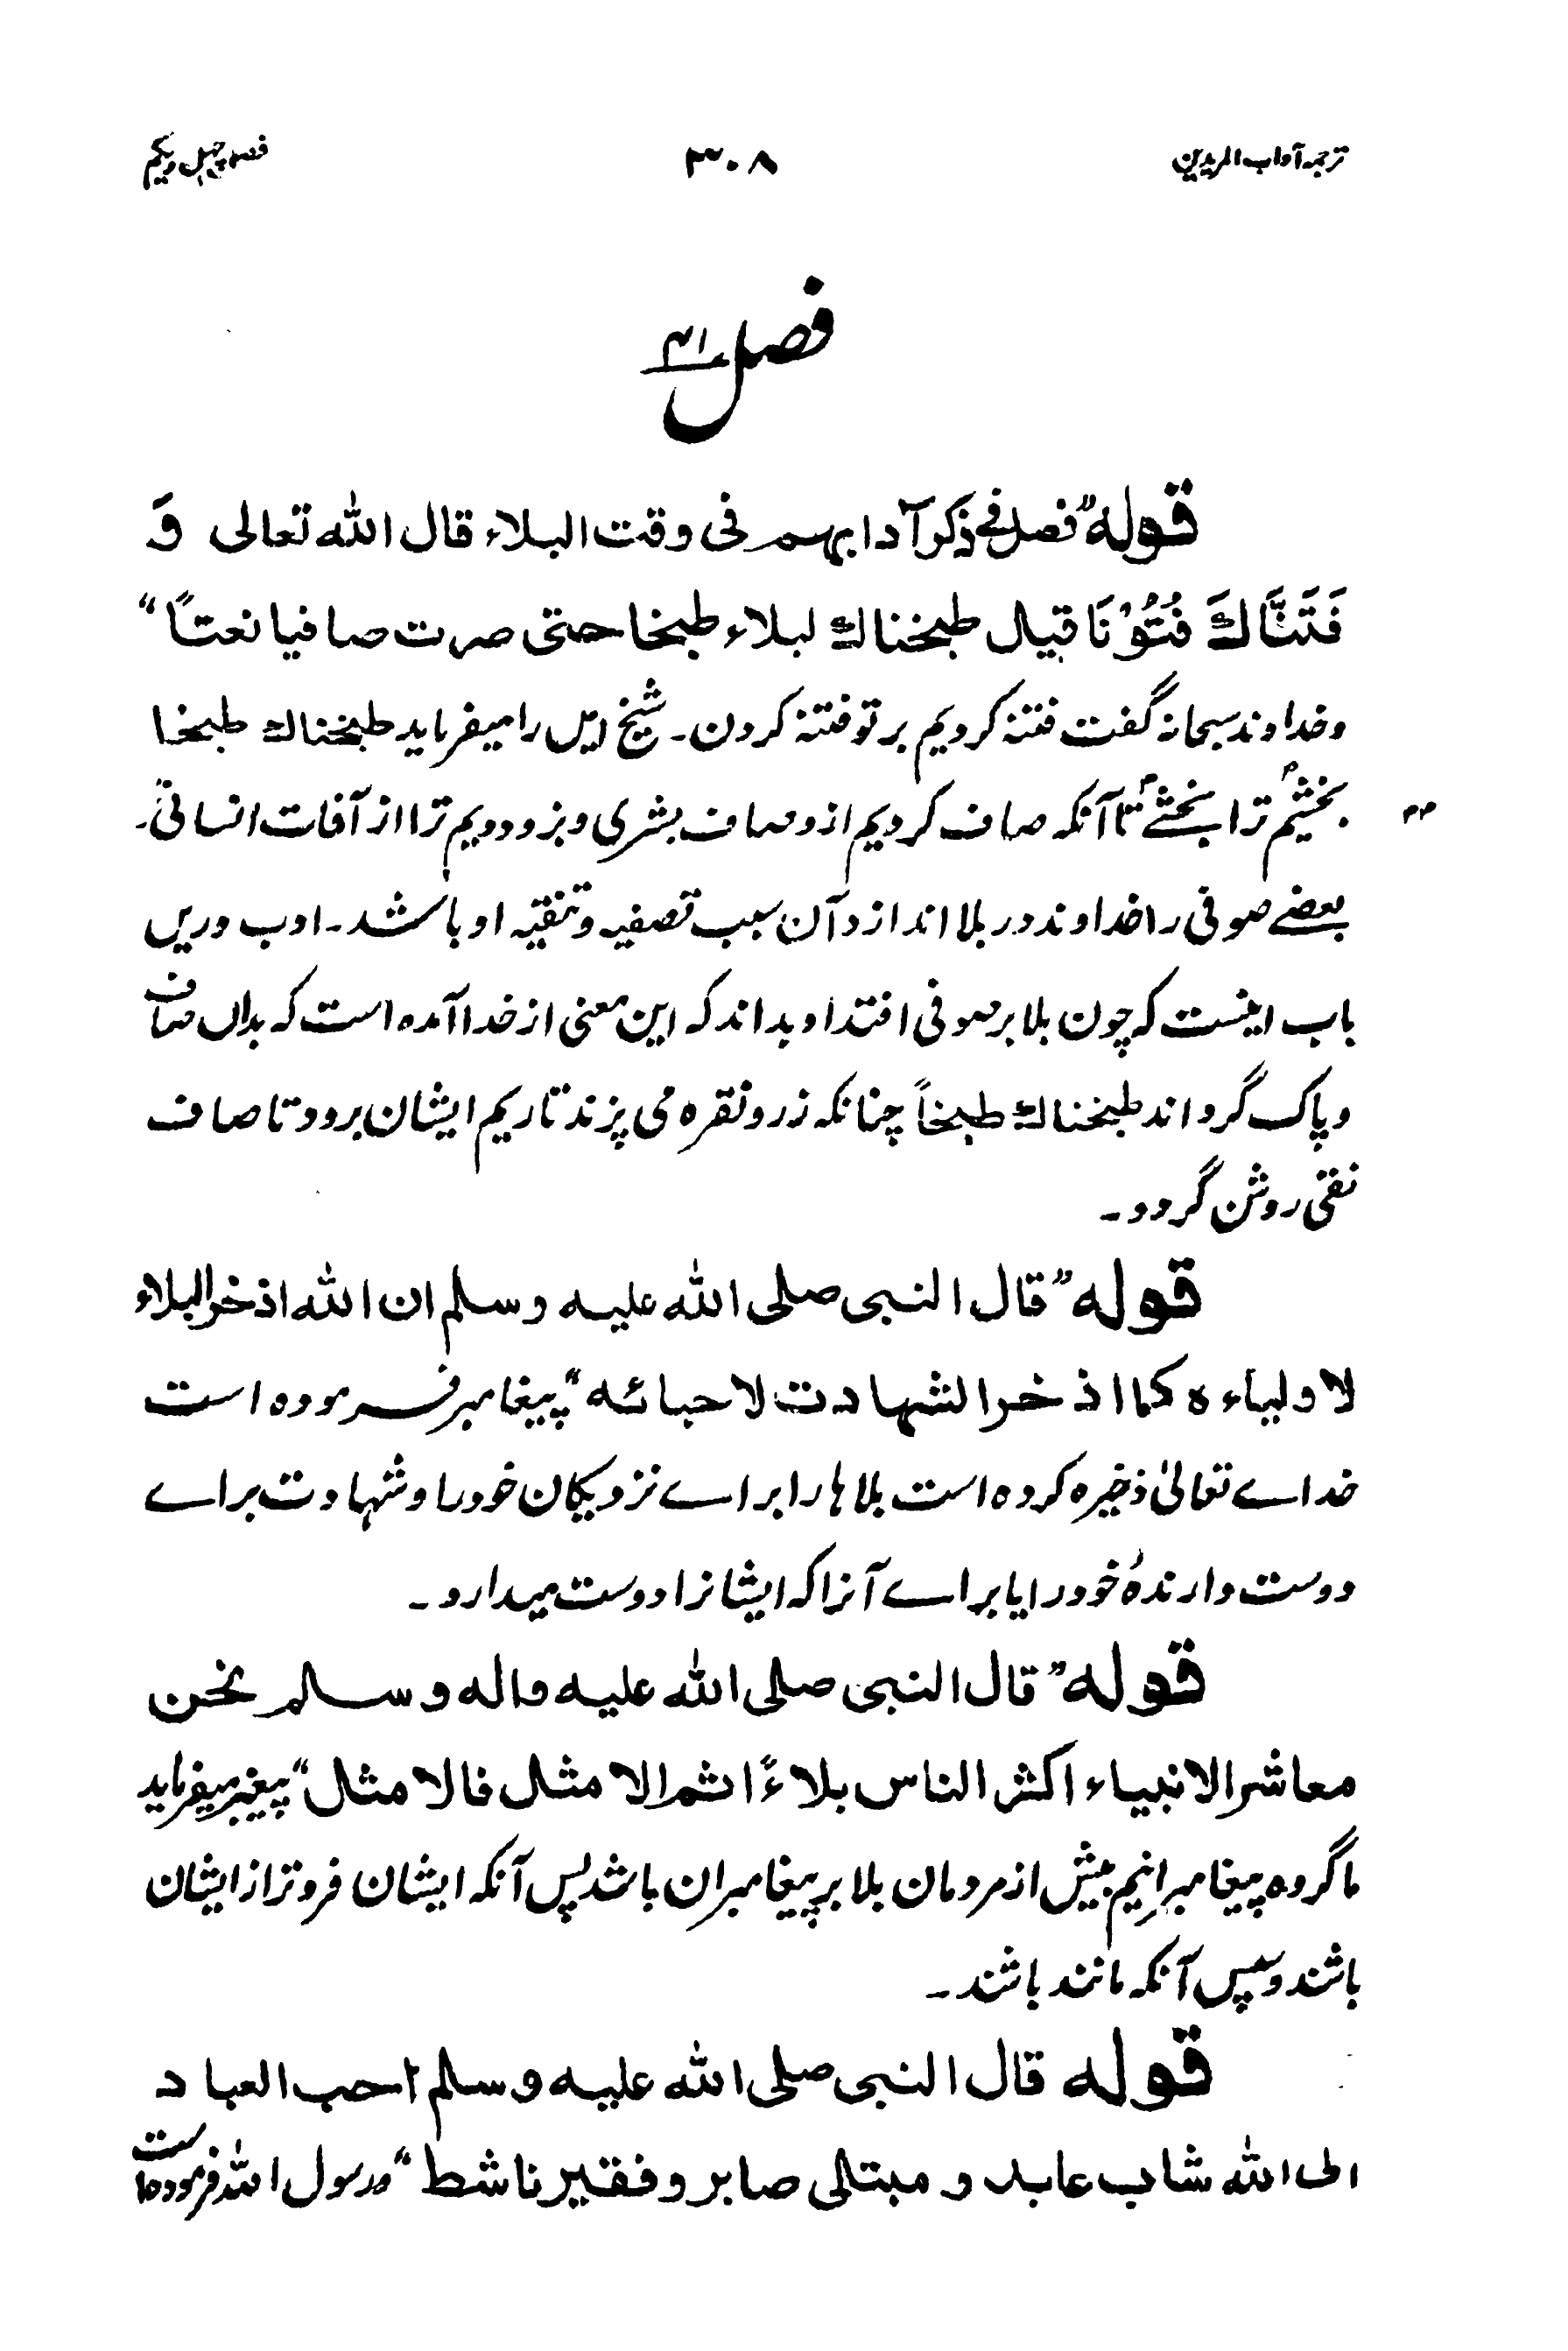 ترجمہ آداب المریدین ۳۰۸ فصل چہل ویکم
فصل ۴۱
قوله ”فصل فی ذکر آدابهم فی وقت البلاء قال الله تعالی وَ
فَتَنَّاكَ فُتُوْنَا قیل طبخناك لبلاء طبخا حتی صرت صافیا نعتاً“
وخداوند سبحانہ گفت فتنہ کردیم بر تو فتنہ کردن۔ شیخ ایں را میفرماید طبخناك طبخا
بخشیم ترا بخشئے تا آنکہ صاف کردیم از وصاف بشری وبزدودیم ترا از آفات انسانی۔
بعضے صوفی را خداوند در بلا اندازد آن سبب تصفیہ وتنقیہ او باشد۔ ادب دریں
باب اینست کہ چون بلا بر صوفی افتد او بداند کہ این معنی از خدا آمدہ است کہ بداں صاف
وپاک گرداند طبخناك طبخاً چنانکہ زر ونقرہ می پزند تا ریم ایشان برود تا صاف
نقی روشن گردد۔
قوله ”قال النبی صلی الله علیه وسلم ان الله اذخر البلاء
لاولیاءہ کما اذخر الشهادت لاحبائه“ پیغامبر فرمودہ است
خداے تعالیٰ ذخیرہ کردہ است بلاہا را براے نزدیکان خود را وشہادت براے
دوست دارندۂ خود را یا براے آنرا کہ ایشانرا دوست میدارد۔
قوله ”قال النبی صلی الله علیه واله وسلم نحن
معاشر الانبیاء اکثر الناس بلاءً اثم الامثل فالامثل“ پیغمبر میفرماید
ما گروہ پیغامبرانیم بیش از مردمان بلا بر پیغامبران باشد پس آنکہ ایشان فروتر از ایشان
باشند وسپس آنکہ مانند باشند۔
قوله قال النبی صلی الله علیه وسلم احب العباد
الی الله شاب عابد و مبتلی صابر وفقیر ناشط“ رسول الله فرمودہ است